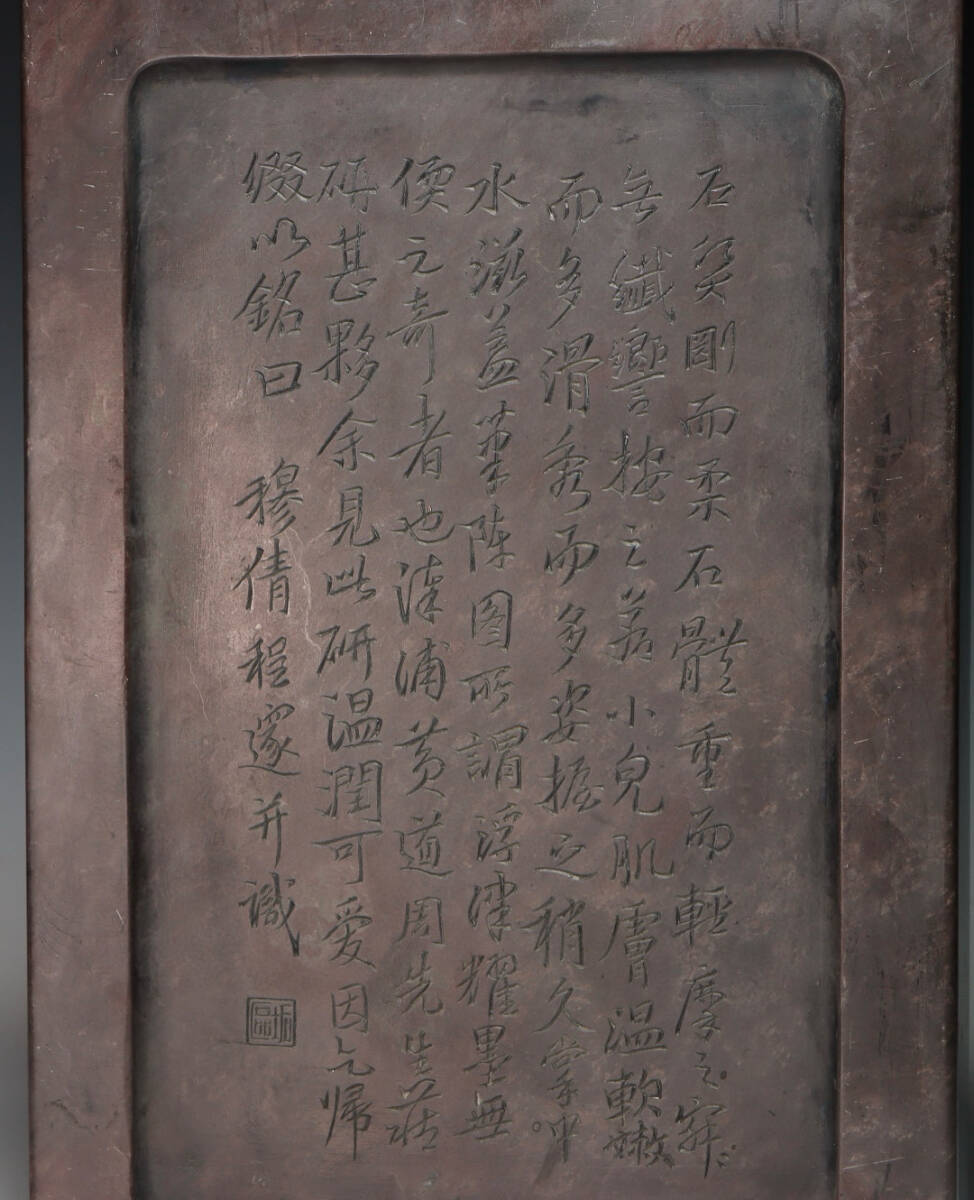 石突剛而柔石體重而輕摩之寂
無纖響按之若小兒肌膚溫軟嫩
而多滑秀而多姿握之稍久掌中
水滋蓋筆陣圖所謂浮津耀墨無
價之奇者也漳浦黃道周先生莊
研甚夥余見此研溫潤可愛因乞歸
綴以銘曰 穆倩程邃并識